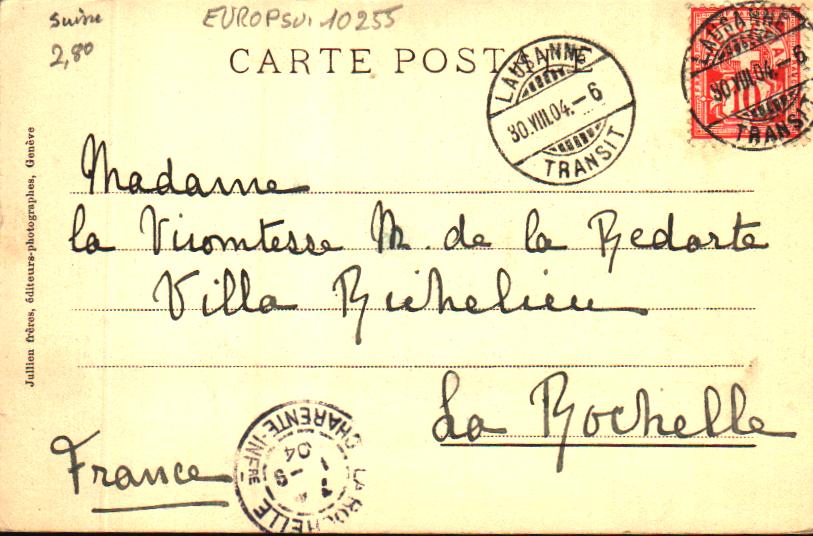 Suisse
2,80
EUROPSUI 10255
CARTE POSTALE
LAUSANNE
30.VIII.04.-6
TRANSIT
LAUSANNE
30.VIII.04.-6
TRANSIT
Jullien frères, éditeurs-photographes, Genève
Madame
la Vicomtesse M. de la Redorte
Villa Richelieu
La Rochelle
France
LA ROCHELLE
CHARENTE-INFRE
1 -9
04